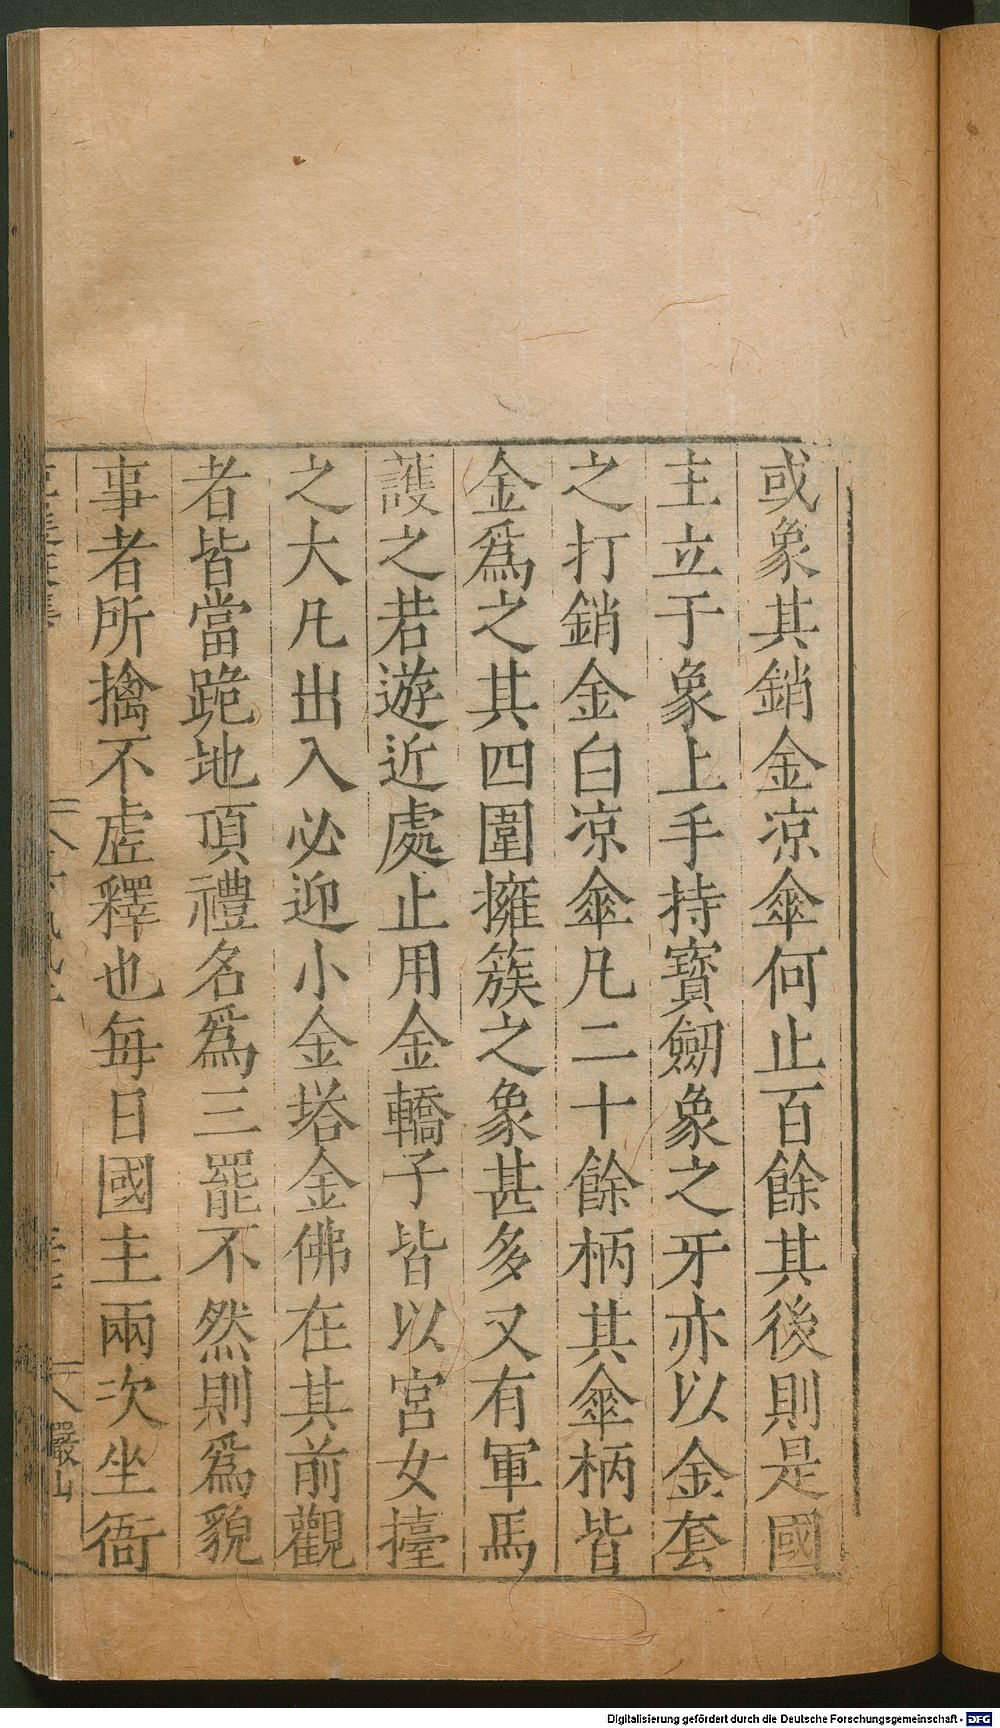 或象其銷金凉傘何止百餘其後則是國
主立于象上手持寳劒象之牙亦以金套
之打銷金白凉傘凡二十餘柄其傘柄皆
金爲之其四圍擁簇之象甚多又有軍馬
護之若遊近處止用金轎子皆以宮女擡
之大凡出入必迎小金塔金佛在其前觀
者皆當跪地頂禮名爲三罷不然則爲貌
事者所擒不虛釋也每日國主兩次坐衙
嚴山
Digitalisierung gefördert durch die Deutsche Forschungsgemeinschaft - DFG